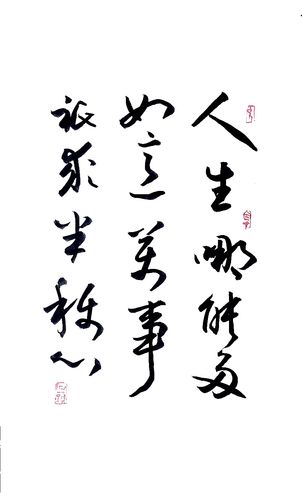 人生哪能多
如意萬事
祇求半稱心